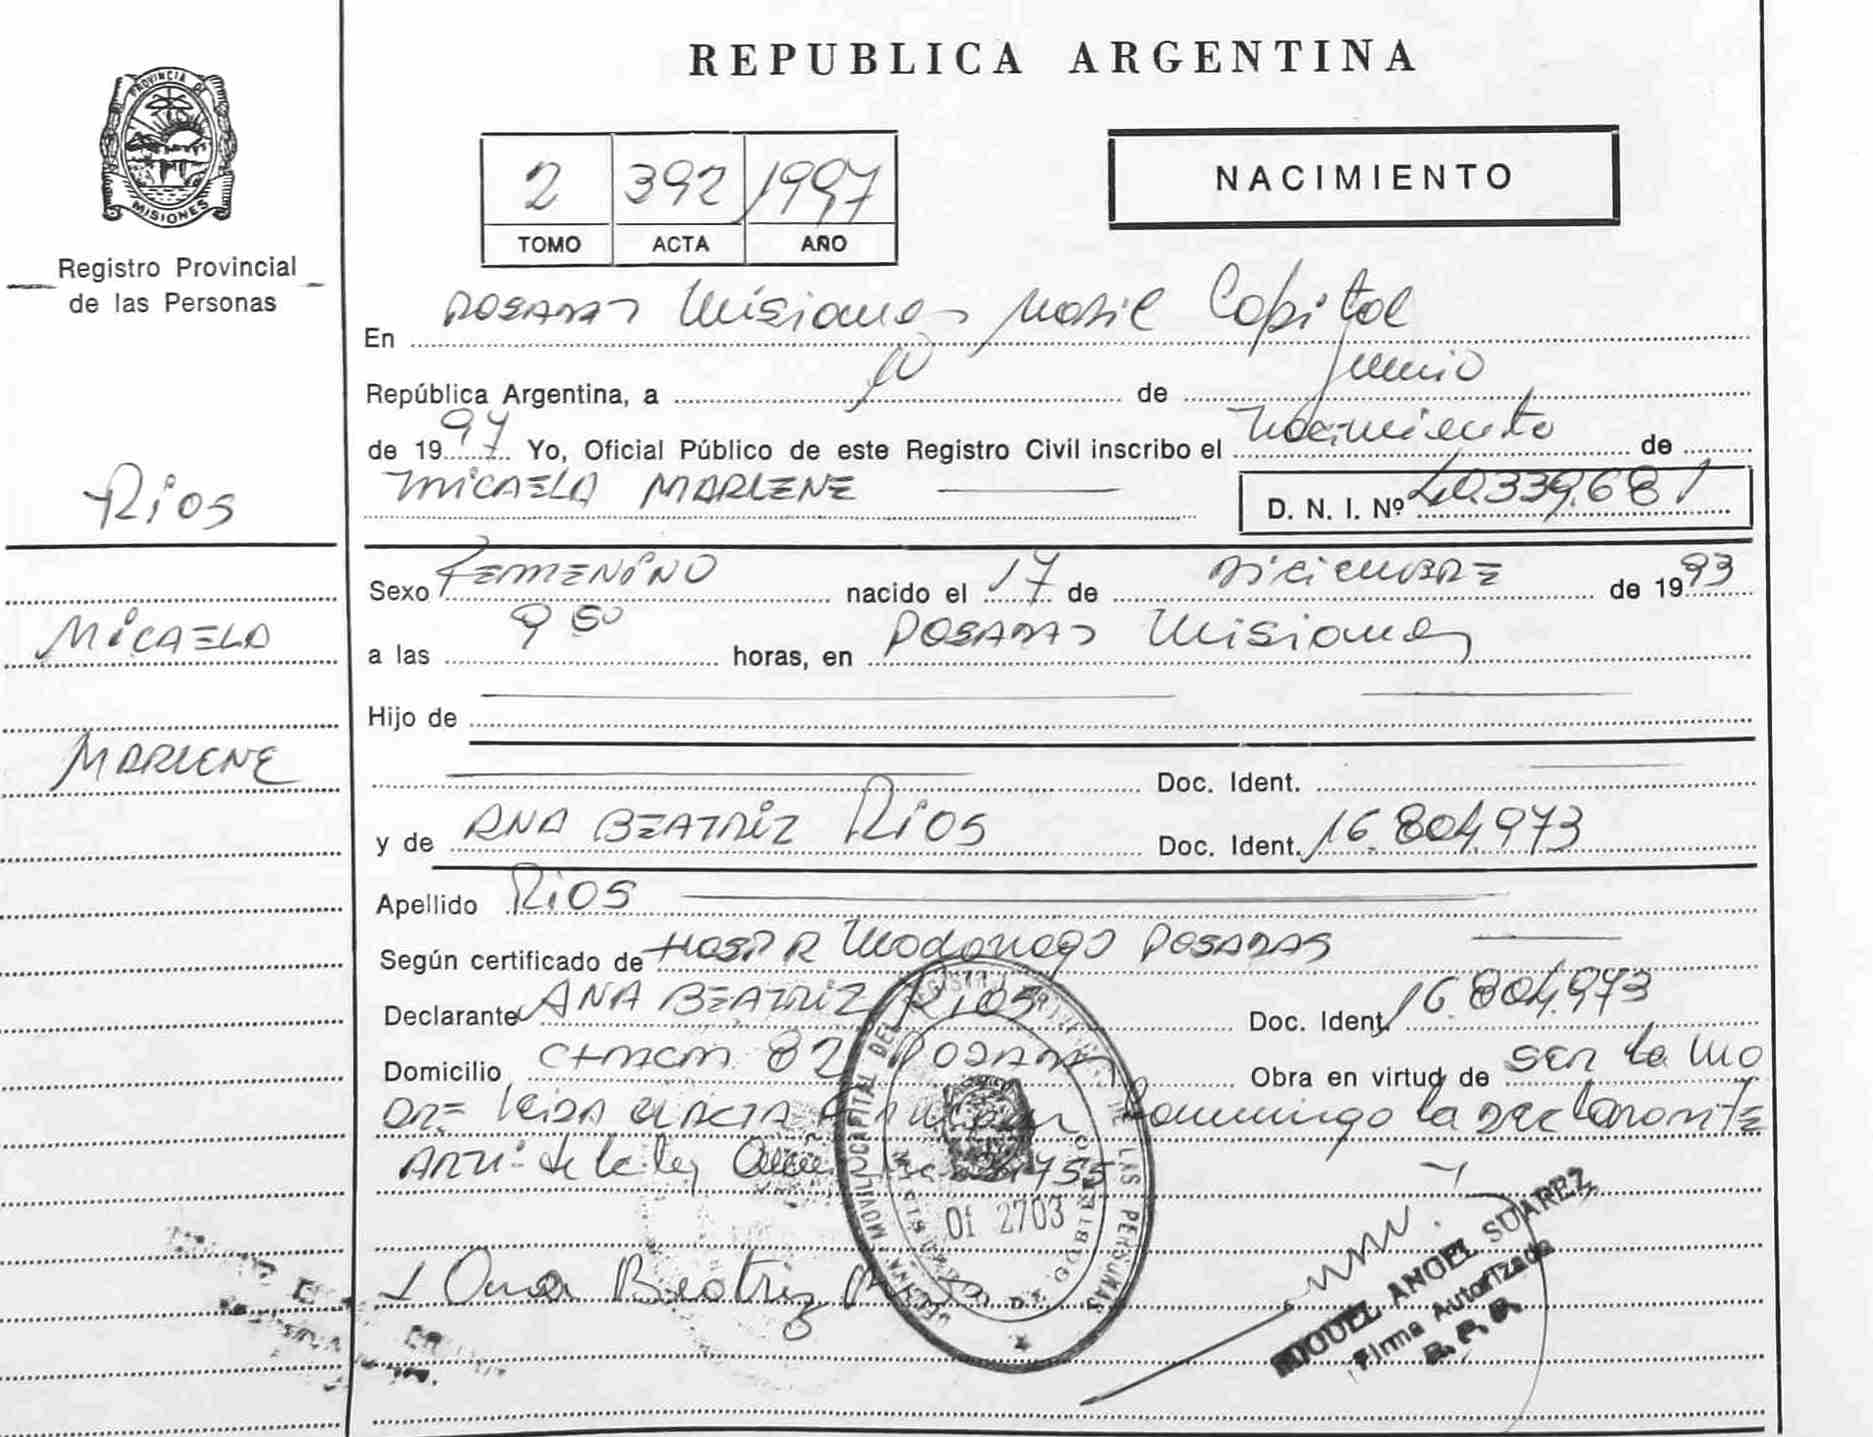 REPUBLICA ARGENTINA
PROVINCIA DE
MISIONES
Registro Provincial
de las Personas
2 392 1997
TOMO ACTA AÑO
NACIMIENTO
En Posadas Misiones Movil Capital
República Argentina, a de Junio
de 1997 Yo, Oficial Público de este Registro Civil inscribo el Nacimiento de
MICAELA MARLENE D. N. I. Nº 40.339.681
Rios
Micaela
Marlene
Sexo Femenino nacido el 17 de Diciembre de 1993
a las 9 50 horas, en Posadas Misiones
Hijo de
Doc. Ident.
y de Ana Beatriz Rios Doc. Ident. 16.804.973
Apellido Rios
Según certificado de Hosp R Madariaga Posadas
Declarante Ana Beatriz Rios Doc. Ident. 16.804.973
Domicilio 82 Posadas Obra en virtud de ser la Ma
dre la declarante
de la ley 755
Of 2703
Ana Beatriz
MIGUEL ANGEL SUAREZ
Firma Autorizada
R. P. P.